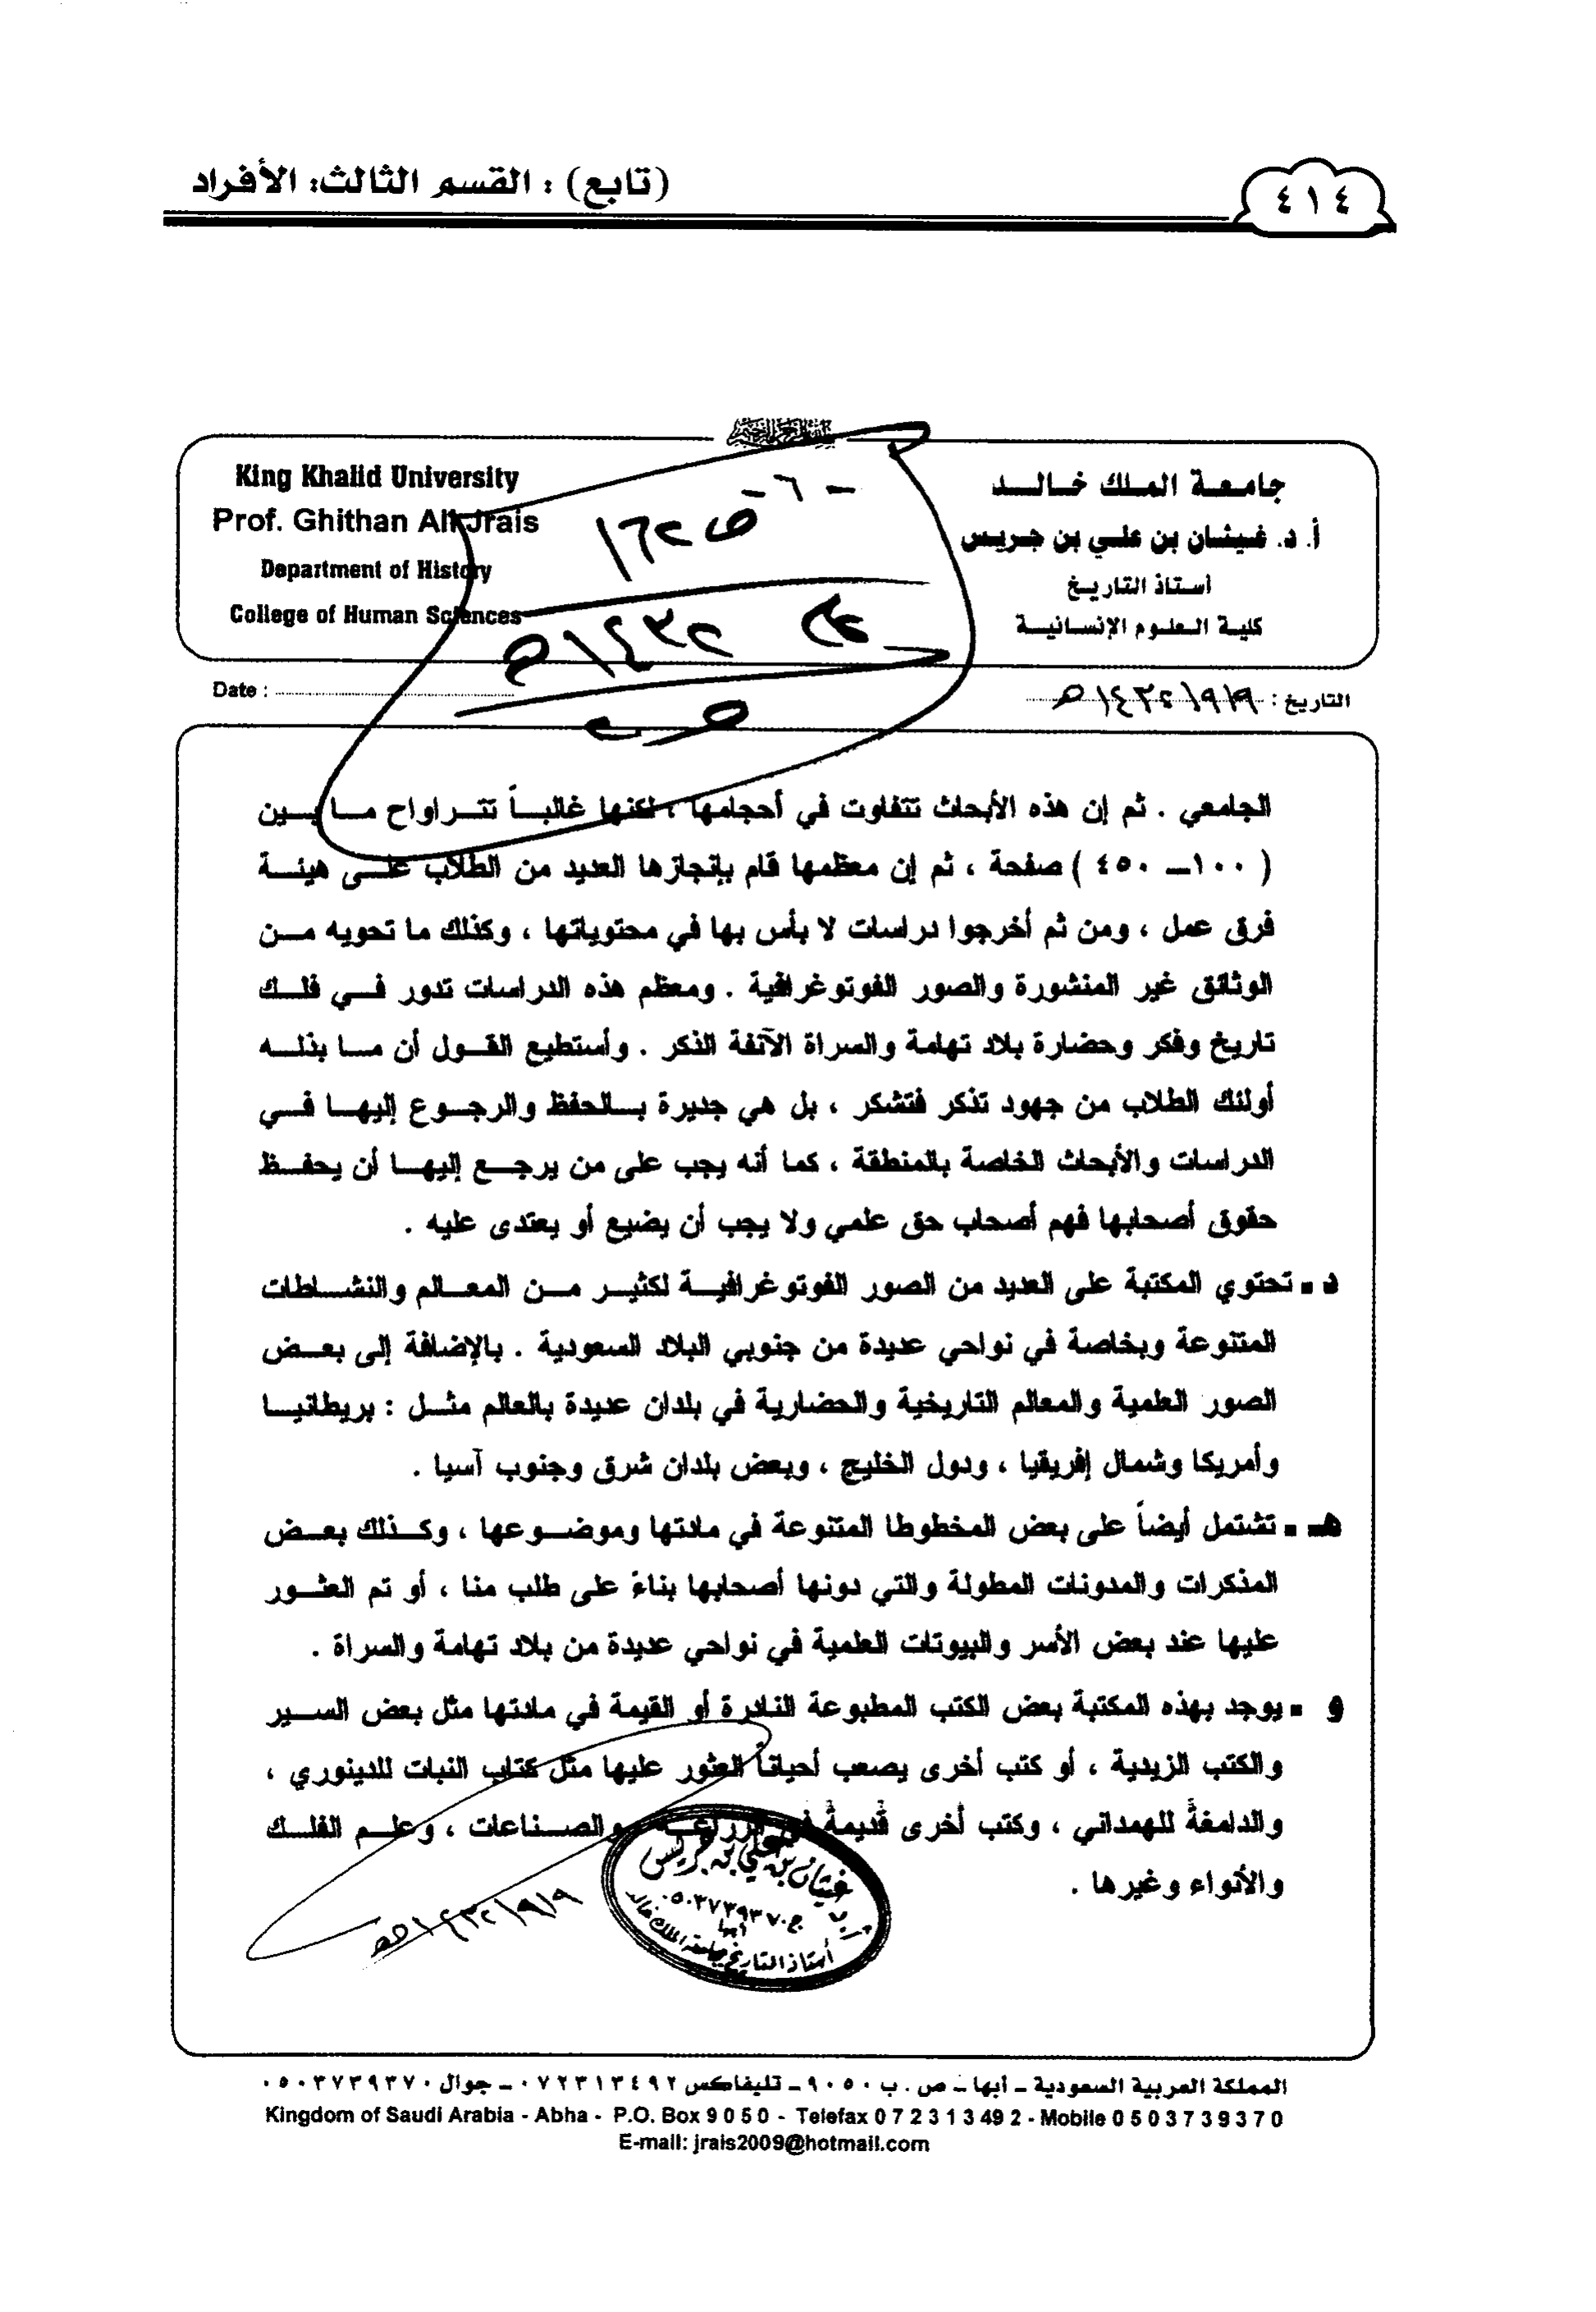 (تابع) : القسم الثالث: الأفراد
٤١٤
King Khalid University
Prof. Ghithan Ali Jrais
Department of History
College of Human Sciences
جامعة الملك خالد
أ. د. غيثان بن علي بن جريس
أستاذ التاريخ
كلية العلوم الإنسانية
-٦-
Date :
التاريخ : ١٤٣٢/٩/٩هـ
الجامعي . ثم إن هذه الأبحاث تتفاوت في أحجامها ، لكنها غالباً تتراواح ما بين
( ١٠٠ــ ٤٥٠ ) صفحة ، ثم إن معظمها قام بإنجازها العديد من الطلاب على هيئة
فرق عمل ، ومن ثم أخرجوا دراسات لا بأس بها في محتوياتها ، وكذلك ما تحويه من
الوثائق غير المنشورة والصور الفوتوغرافية . ومعظم هذه الدراسات تدور في فلك
تاريخ وفكر وحضارة بلاد تهامة والسراة الآنفة الذكر . وأستطيع القول أن ما بذله
أولئك الطلاب من جهود تذكر فتشكر ، بل هي جديرة بالحفظ والرجوع إليها في
الدراسات والأبحاث الخاصة بالمنطقة ، كما أنه يجب على من يرجع إليها أن يحفظ
حقوق أصحابها فهم أصحاب حق علمي ولا يجب أن يضيع أو يعتدى عليه .
د - تحتوي المكتبة على العديد من الصور الفوتوغرافية لكثير من المعالم والنشاطات
المتنوعة وبخاصة في نواحي عديدة من جنوبي البلاد السعودية . بالإضافة إلى بعض
الصور العلمية والمعالم التاريخية والحضارية في بلدان عديدة بالعالم مثل : بريطانيا
وأمريكا وشمال إفريقيا ، ودول الخليج ، وبعض بلدان شرق وجنوب آسيا .
هـ - تشتمل أيضاً على بعض المخطوطا المتنوعة في مادتها وموضوعها ، وكذلك بعض
المذكرات والمدونات المطولة والتي دونها أصحابها بناءً على طلب منا ، أو تم العثور
عليها عند بعض الأسر والبيوتات العلمية في نواحي عديدة من بلاد تهامة والسراة .
و - يوجد بهذه المكتبة بعض الكتب المطبوعة النادرة أو القيمة في مادتها مثل بعض السير
والكتب الزيدية ، أو كتب أخرى يصعب أحياناً العثور عليها مثل كتاب النبات للدينوري ،
والدامغة للهمداني ، وكتب أخرى قديمة في الزراعة والصناعات ، وعلم الفلك
والأنواء وغيرها .
غيثان بن علي بن جريس
ج ٠٥٠٣٧٣٩٣٧٠
أبها
أستاذ التاريخ بجامعة الملك خالد
١٤٣٢/٩/٩هـ
المملكة العربية السعودية ــ أبها ــ ص . ب ٩٠٥٠ ــ تليفاكس ٠٧٢٣١٣٤٩٢ ــ جوال ٠٥٠٣٧٣٩٣٧٠
Kingdom of Saudi Arabia - Abha - P.O. Box 9 0 5 0 - Telefax 0 7 2 3 1 3 49 2 - Mobile 0 5 0 3 7 3 9 3 7 0
E-mail: jrais2009@hotmail.com